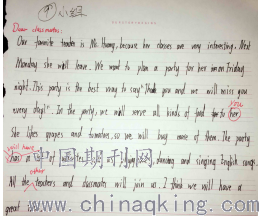 9 小组
Dear classmates:
Our favorite teacher is Ms. Huang, because her classes are very interesting. Next
Monday she will leave. We want to plan a party for her on Friday
night. This party is the best way to say "Thank you and we will miss you
every day!". In the party, we will serve all kinds of food for to her
She likes grapes and tomatoes, so we will buy more of them. The party
will have
has a dancing and singing English songs.
other
All the teachers and classmates will join us. I think we will have a
great
中国期刊网
www.chinaqking.com